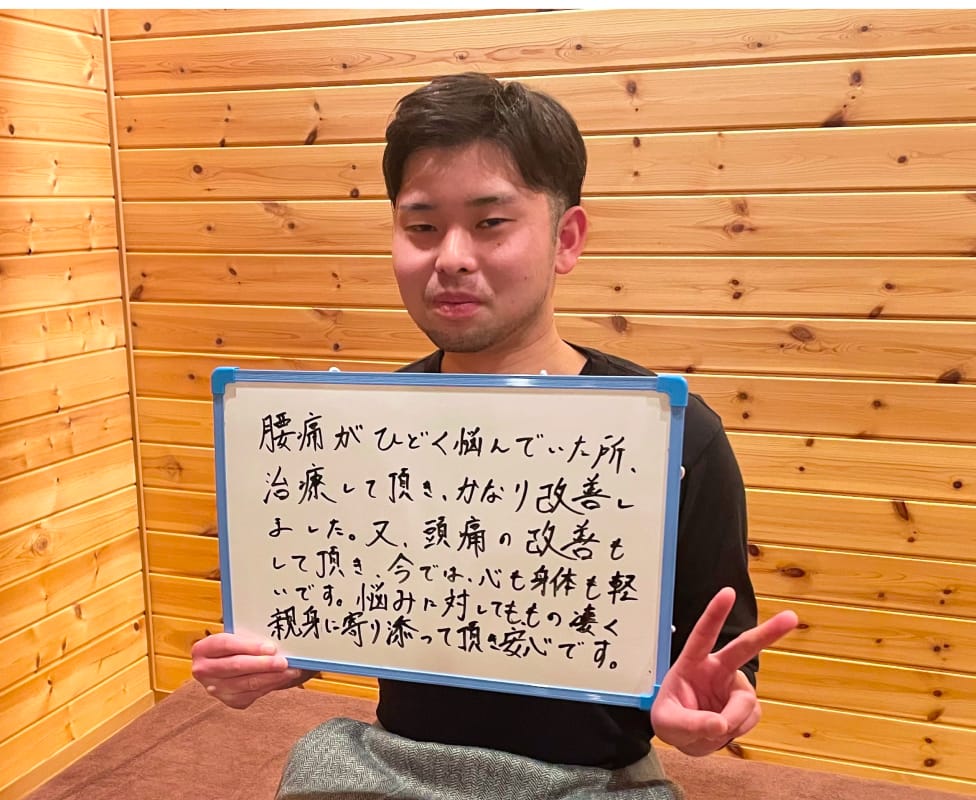 腰痛がひどく悩んでいた所、
治療して頂き、かなり改善し
ました。又、頭痛の改善も
して頂き、今では、心も身体も軽
いです。悩みに対してももの凄く
親身に寄り添って頂き安心です。